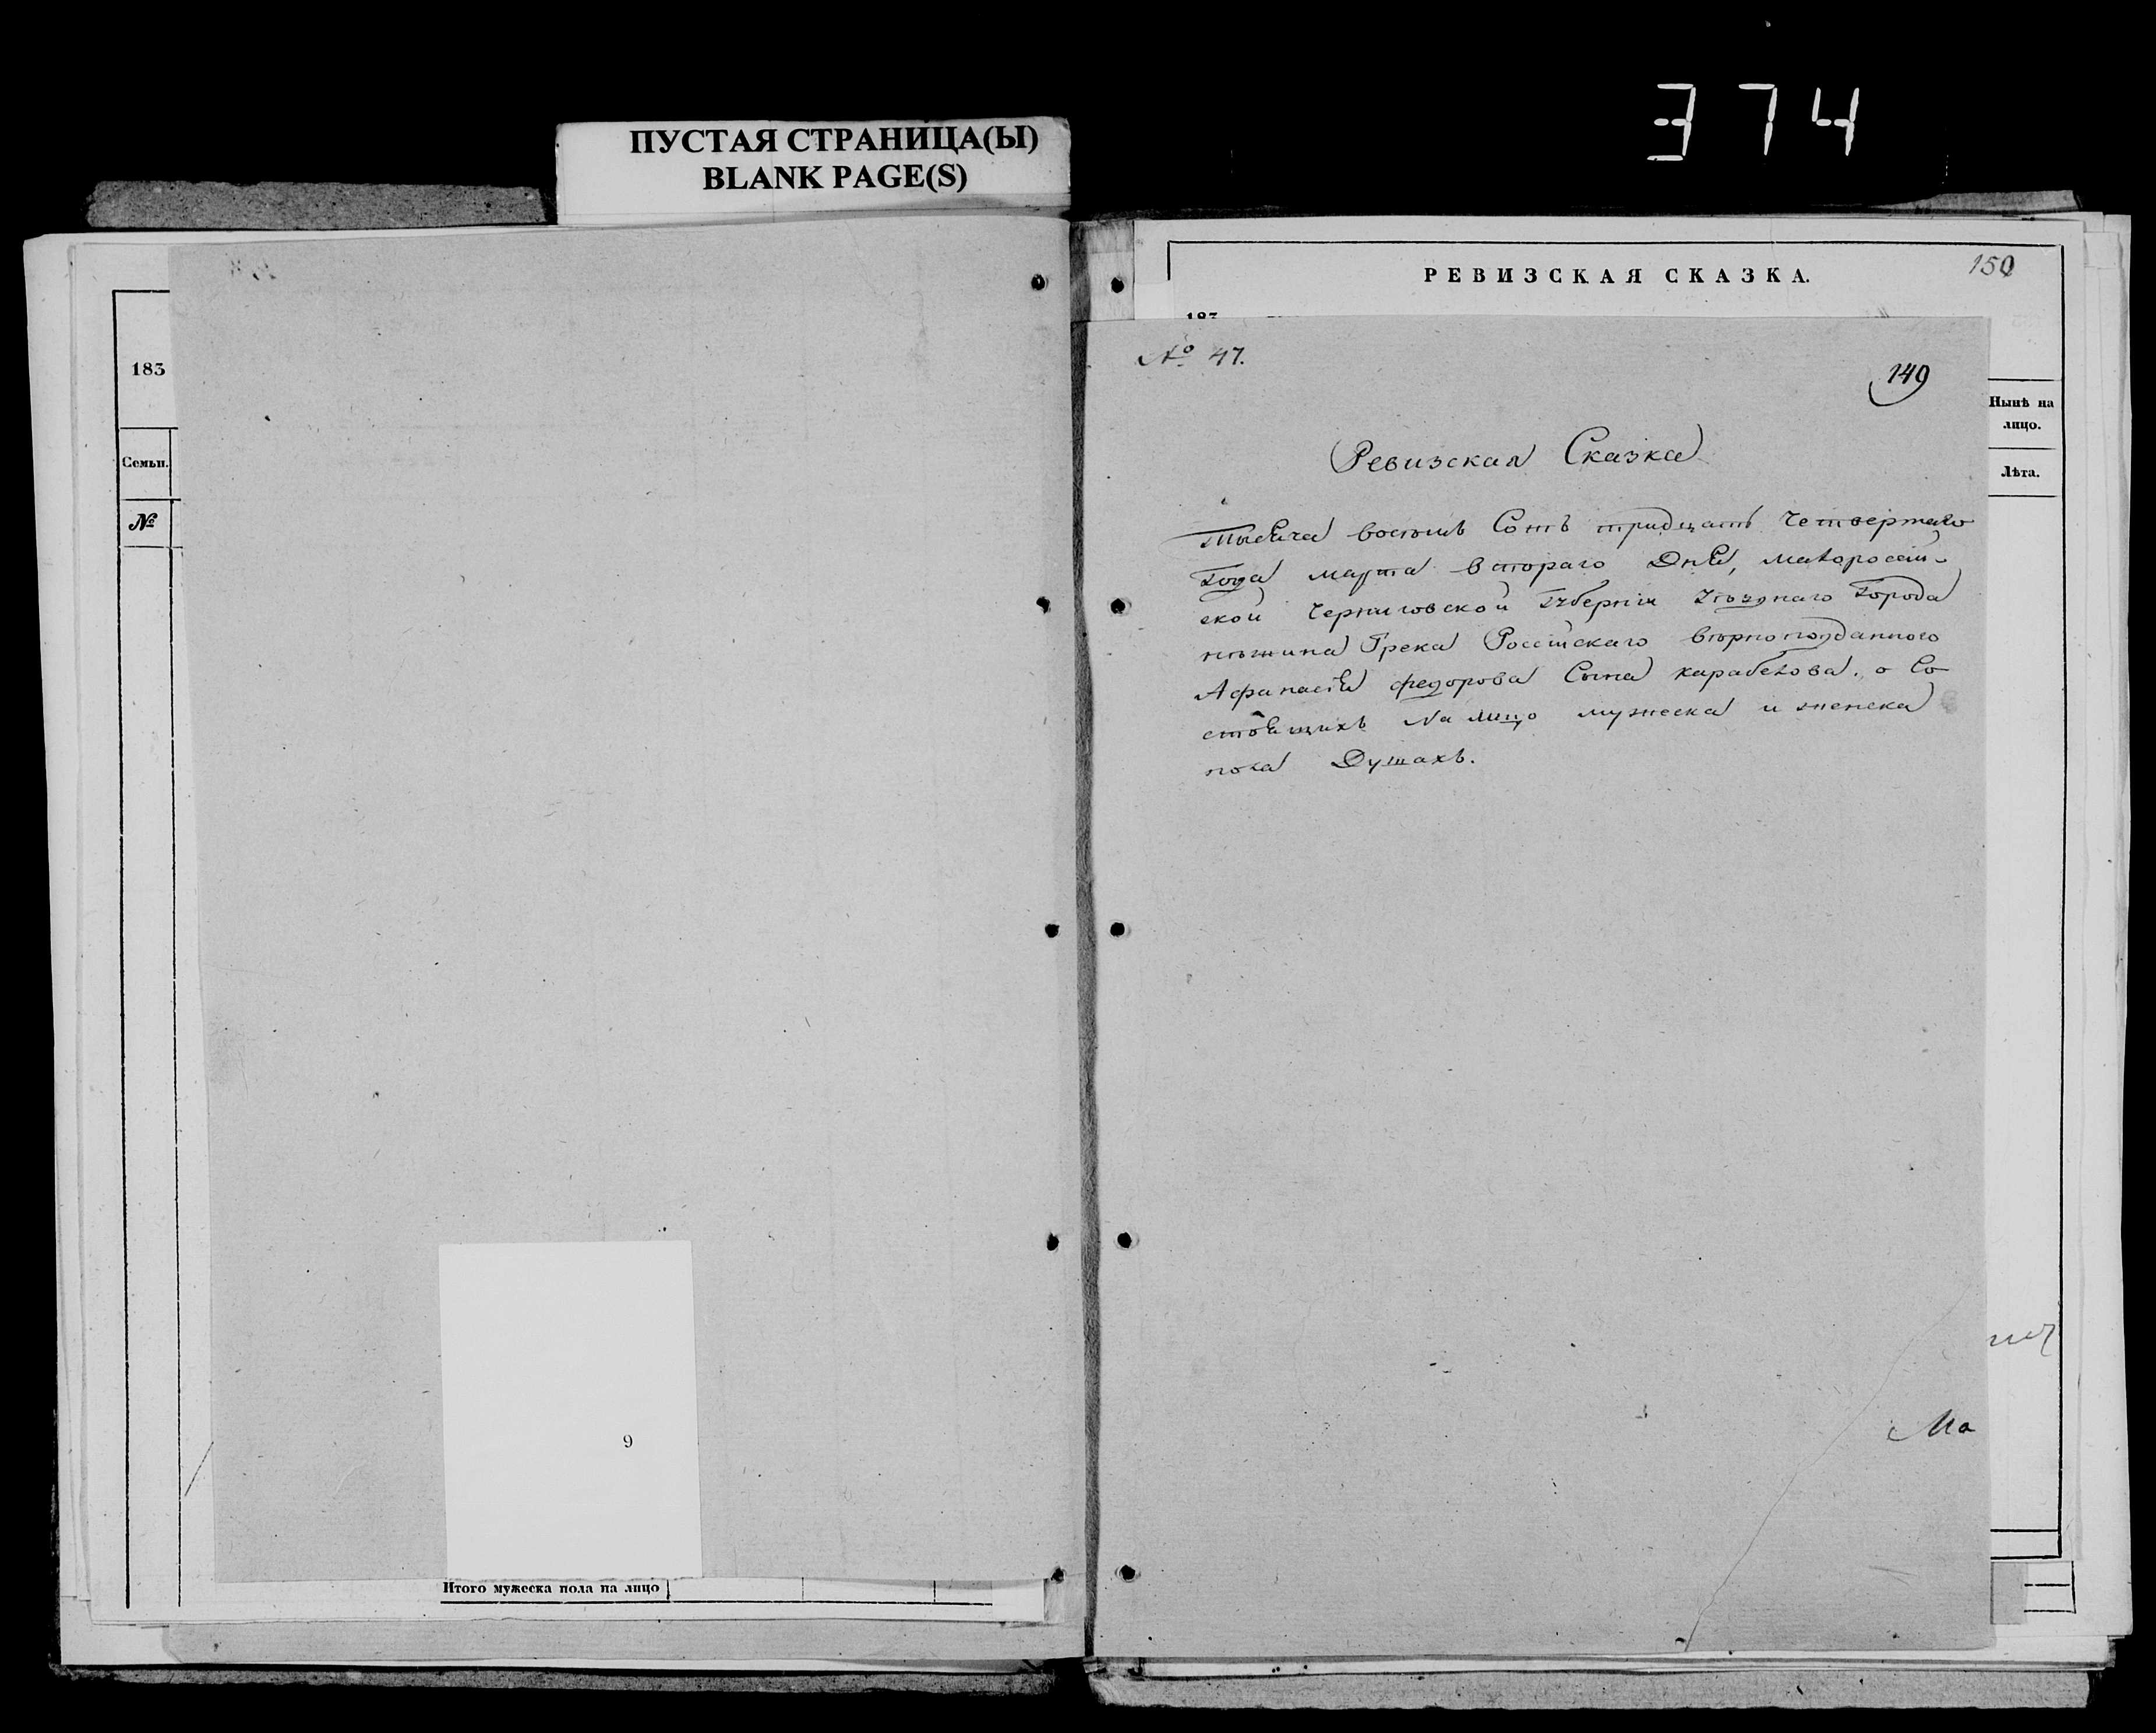 374
ПУСТАЯ СТРАНИЦА(Ы)
BLANK PAGE(S)
183
Семьи.
№
9
Итого мужеска пола на лицо
РЕВИЗСКАЯ СКАЗКА.
150
183
Нынѣ на
лицо.
Лѣта.
№ 47.
149
Ревизская Сказка
Тысяча восемь Сотъ тридцать Четвертаго
Года марта втораго Дня, малоросеій-
ской Черниговской Губерніи Уѣзднаго Города
нѣжина Грека Россійскаго вѣрноподданного
Афанасія федорова Сына карабелова. о Со-
стоящихъ На лицо мужеска и женска
пола Душахъ.
Ма